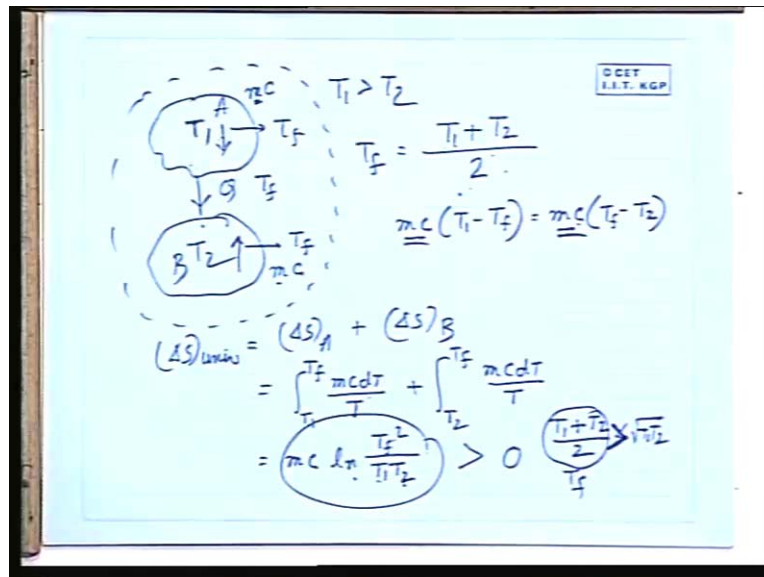 © CET
I.I.T. KGP
A mc
T₁ ↓ → T_f
T₁ > T₂
T_f = (T₁ + T₂) / 2
Q T_f
B T₂ ↑ → T_f
mc
mc (T₁ - T_f) = mc (T_f - T₂)
(ΔS)univ = (ΔS)A + (ΔS)B
= ∫_{T₁}^{T_f} mcdT / T + ∫_{T₂}^{T_f} mcdT / T
= mc ln T_f² / T₁T₂ > 0 (T₁ + T₂) / 2 > √T₁T₂
T_f